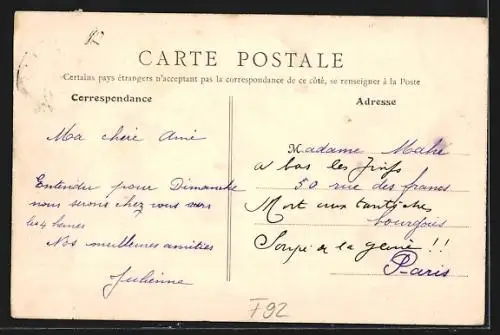 CARTE POSTALE
Certains pays étrangers n'acceptant pas la correspondance de ce côté, se renseigner à la Poste
Correspondance
Ma chère Amie
Entendu pour Dimanche
nous serons chez vous vers
les 4 heures
Nos meilleures amitiés
Julienne
Adresse
Madame Mahe
a bas les Juifs
50 rue des francs
Mort aux
bourgeois
Soupe de la !!
Paris
F92